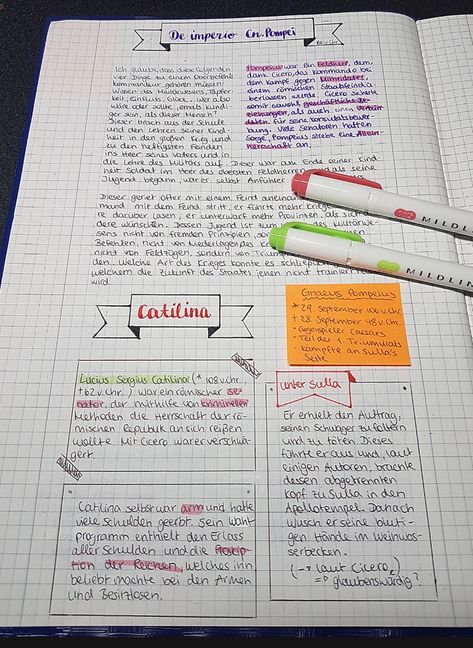 De imperio Cn. Pompei
66 v. Chr.
Ich glaube, dass diese folgenden
vier Dinge zu einem Oberbefehls
kommandeur gehören müssen:
Wissen des Militärwesens, Tapfer-
keit, Einfluss, Glück. Wer also
ist oder wäre jemals kundi-
ger sein, als dieser Mensch?
Dieser brach aus der Schule
und den Lehren seiner Kind-
heit in den großen Krieg und
zu den heftigsten Feinden
ins Heer seines Vaters und in
die Lehre des Militärs auf. Dieser war am Ende seiner Kind
heit Soldat im Heer des obersten Feldherren und als seine
Jugend begann, war er selbst Anführer
Pompeius war ein Feldherr, dem,
dank Cicero, das Kommando be
dem Kampf gegen Mithridates,
einem römischen Staatsfeind, ü-
berlassen wurde. Cicero sicherte
somit sowohl geschäftliche Be-
ziehungen, als auch einen
für seine Konsulatsbewer-
bung. Viele Senatoren hatten
Sorge, Pompeius strebe eine Allein-
herrschaft an.
Dieser geriet öfter mit einem Feind aneinander
mand mit dem Feind stritt, er führte mehr Kriege
re darüber lasen, er unterwarf mehr Provinzen, als sich
dere wünschen. Dessen Jugend ist zum
sens nicht von fremden Prinzipien, so
Befehlen, nicht von Niederlagen des
nicht von Feldzügen, sondern von Triumph
den. Welche Art des Krieges konnte es schließlich
welchem die Zukunft des Staates jenen nicht trainiert
wird.
MILDLIN
MILDLIN
Catilina
Gnaeus Pompeius
* 29. September 106 v. Chr.
+ 28. September 48 v. Chr.
- Gegenspieler Caesars
- Teil des 1. Triumvirats
- kämpfte an Sulla's
Seite
Lucius Sergius Catilina (* 108 v. Chr.
+ 62 v. Chr.) war ein römischer Se-
nator, der mithilfe von kriminellen
Methoden die Herrschaft der rö-
mischen Republik an sich reißen
wollte. Mit Cicero war er verschwä-
gert.
Catilina selbst war arm und hatte
viele Schulden geerbt. Sein Wahl-
programm enthielt den Erlass
aller Schulden und die Proskrip-
tion der Reichen, welches ihn
beliebt machte bei den Armen
und Besitzlosen.
unter Sulla
Er erhielt den Auftrag,
seinen Schwager zu foltern
und zu töten. Dieses
führte er aus und, laut
einigen Autoren, brachte
dessen abgetrennten
Kopf zu Sulla in den
Apollotempel. Danach
wusch er seine bluti-
gen Hände im Weihwas-
serbecken.
(→ laut Cicero,
⇒ glaubenswürdig?